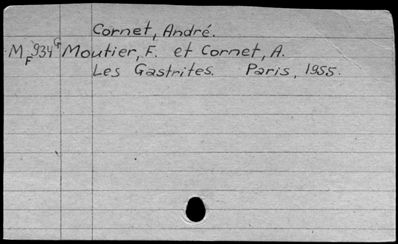 Cornet, André.
MF934G Moutier, F. et Cornet, A.
Les Gastrites. Paris, 1955.